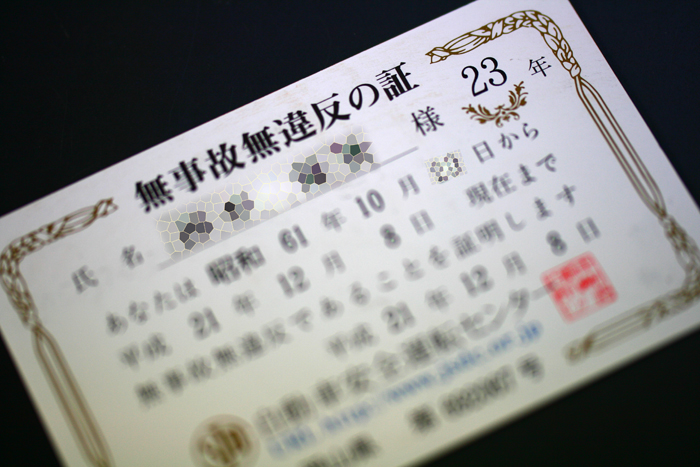 無事故無違反の証 23 年
氏 名 様
あなたは 昭和 61 年 10 月 日から
平成 21 年 12 月 8 日 現在まで
無事故無違反であることを証明します
平成 21 年 12 月 8 日
自動車安全運転センター
URL http://www.jsdc.or.jp